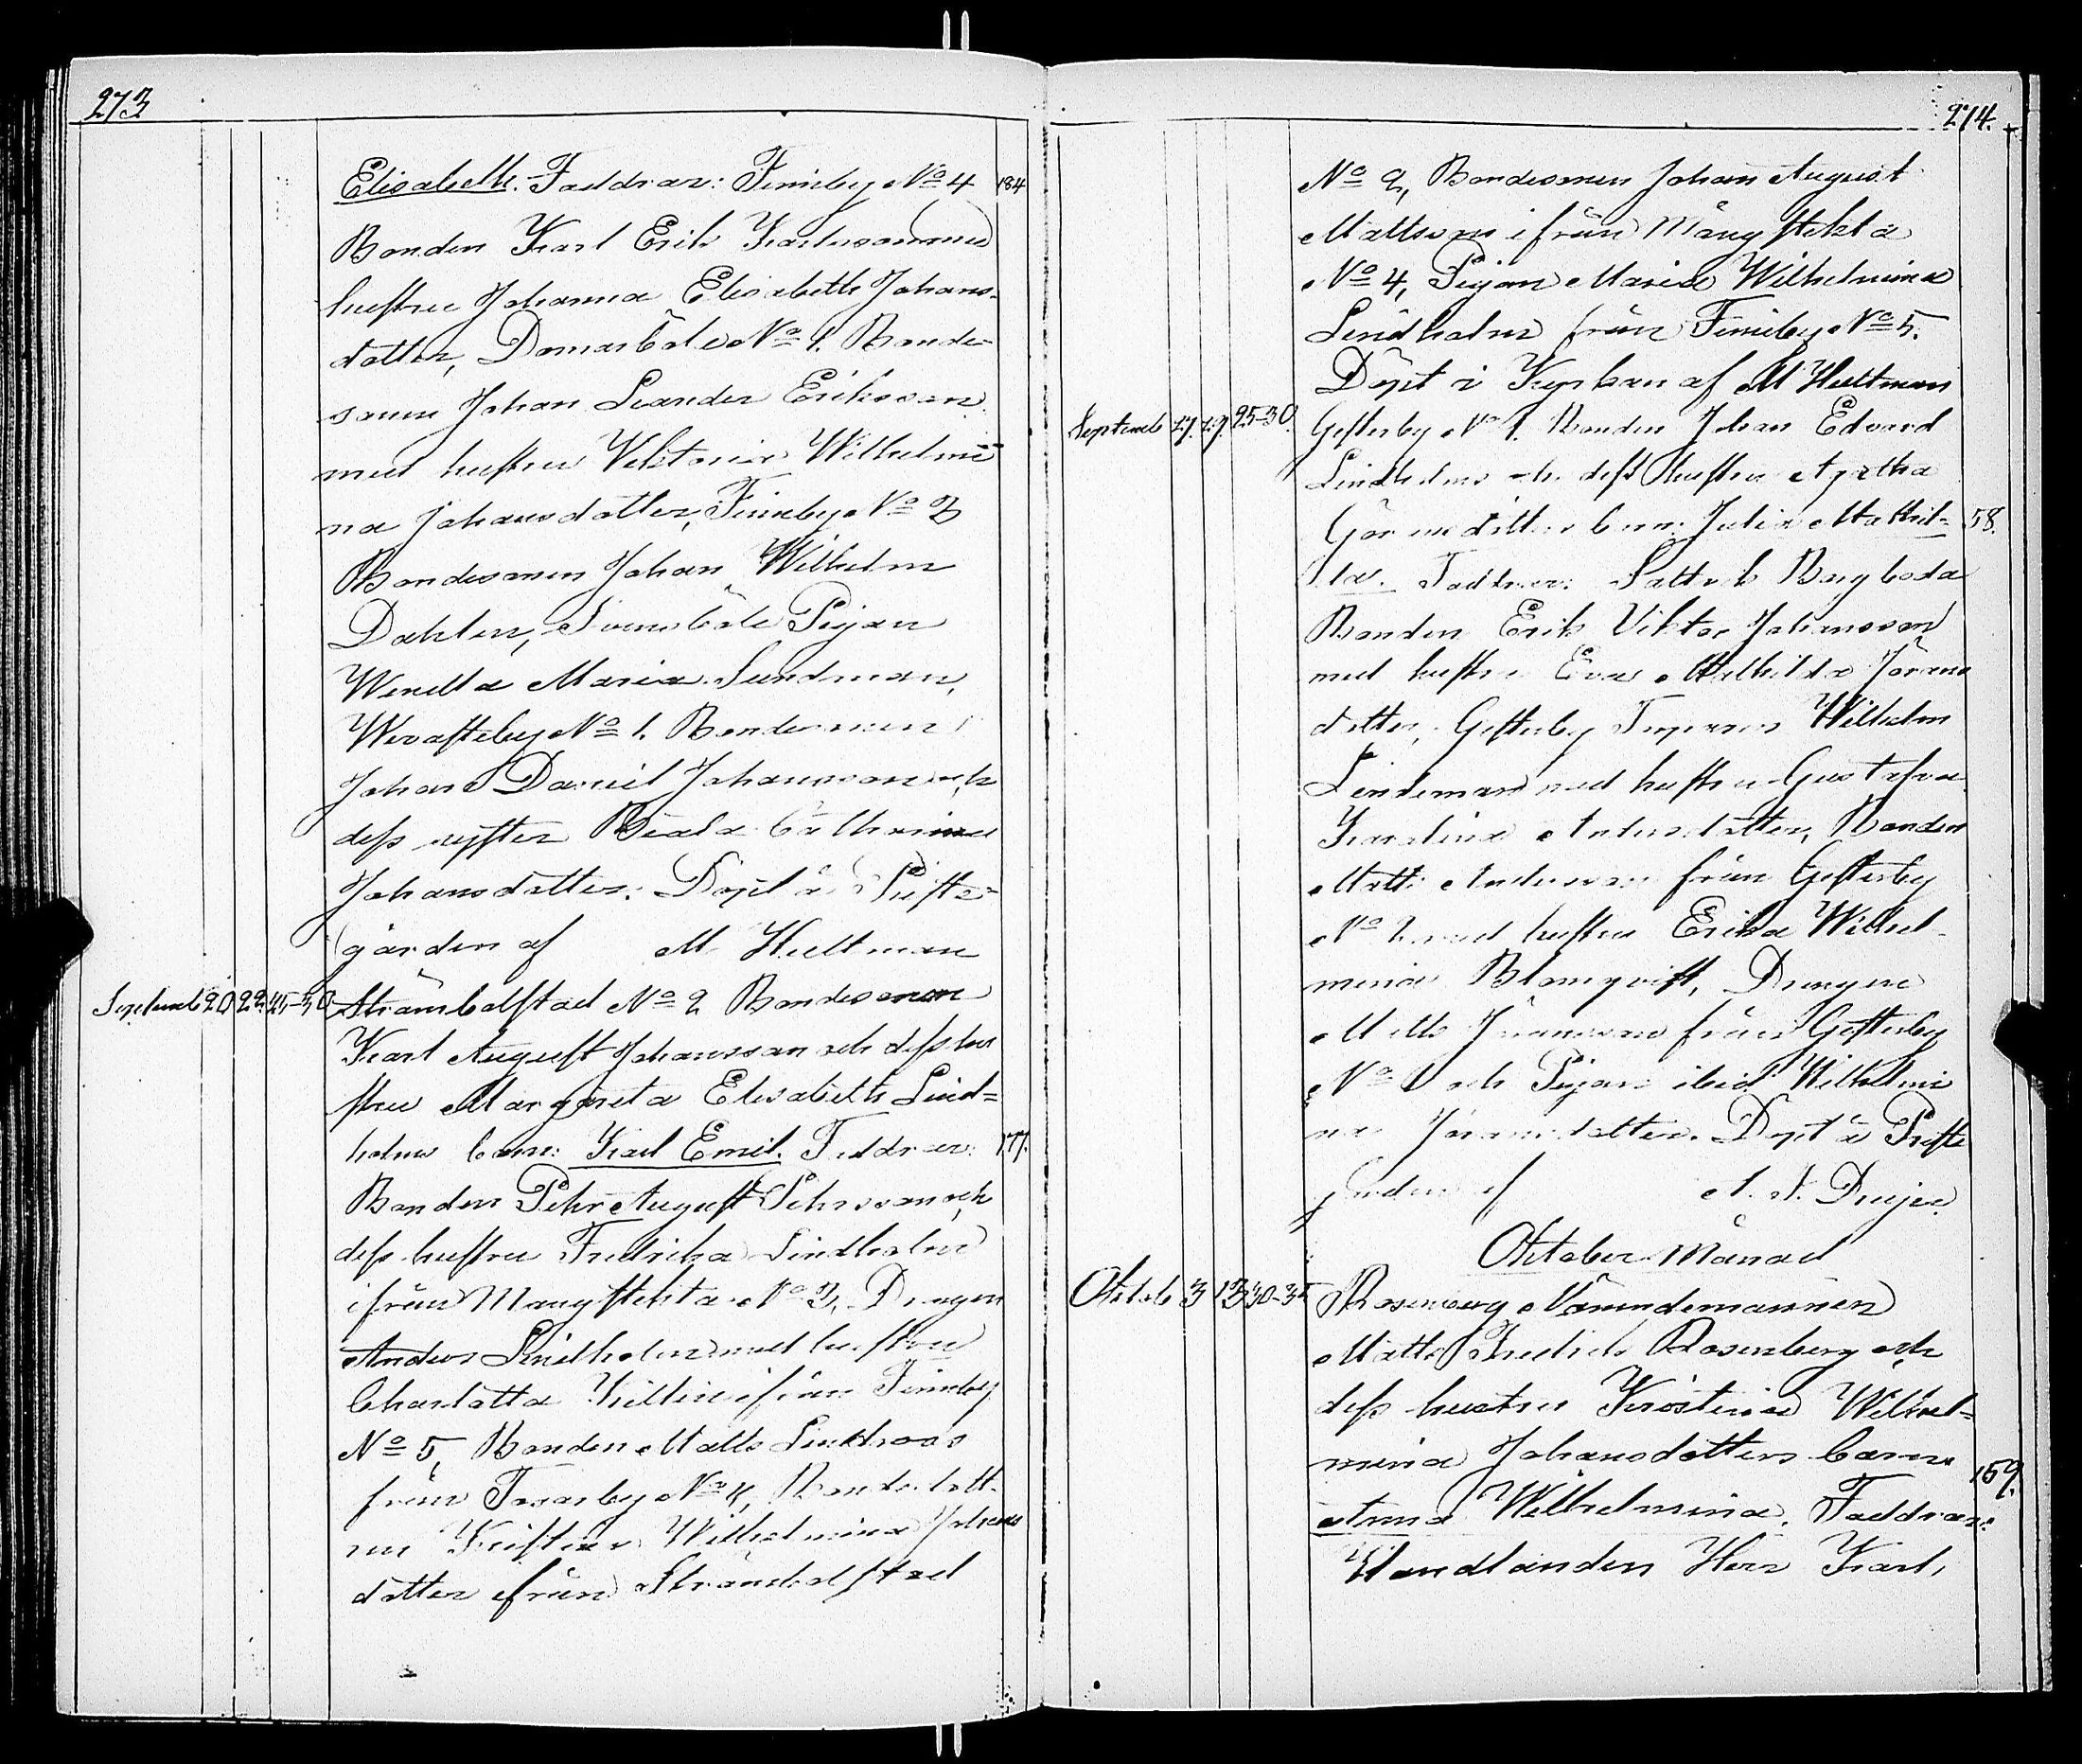 273
Elisabeth. Faddrar: Finneby No 4 184
Bonden Karl Erik Karlsson med
hustru Johanna Elisabeth Johans-
dotter, Domarböle No 1. Bonde-
sonen Johan Leander Eriksson
med hustru Viktoria Wilhelmi
na Johansdotter, Finneby No 3
Bondesonen Johan Wilhelm
Dahlen, Svensböle Pigan
Wendla Maria Sundman,
No 1. Bondesonen
Johan Daniel Johansson och
dess syster Beata Catharina
Johansdotter. Döpt å Prest-
gården af M. Hultman
Septemb 20 22. 25-30 Strömbolstad No 2 Bondesonen
Karl August Johansson och dess hu
stru Margareta Elisabeth Lind-
holms barn: Karl Emil. Faddrar: 177.
Bonden Pehr August Pehrsson och
dess hustru Fredrika Lindholm
ifrån Mångstekta No 3, Drengen
Anders Lindholm med hustru
Charlotta ifrån Finneby
No 5, Bonden Matts Lindroos
från No 4, Bondedott-
ren Wilhelmina Johans
dotter ifrån Strömbolstad
274.
No 2, Bondesonen Johan August
Mattsson ifrån Mångstekta
No 4, Pigan Maria Wilhelmina
Lindholm från Finneby No 5.
Döpt i Kyrkan af M Hultman
Septemb 27. 29. 25-30. Gesterby No 1. Bonden Johan Edvard
Lindholms och dess hustru Agatha
Göransdotters barn: Julia Mathil- 58.
da. Faddrar: Bergboda
Bonden Erik Viktor Johansson
med hustru Eva Mathilda Görans
dotter, Gesterby Wilhelm
Lindeman med hustru Gustafva
Karolina Andersdotter, Bonden
Matts Andersson från Gesterby
No med hustru Erika Wilhel-
mina Blomqvist, Drengen
Matts Göransson från Gesterby
No 1 och Pigan ibid Wilhelmi
na Göransdotter. Döpt å Prest
gården af
Oktober Månad
Oktob 3 13 30-35 Rosenberg
Matts Fredrik Rosenberg och
dess hustru Kristina Wilhel-
mina Johansdotters barn
Anna Wilhelmina. Faddrar: 159.
Handlanden Herr Karl,